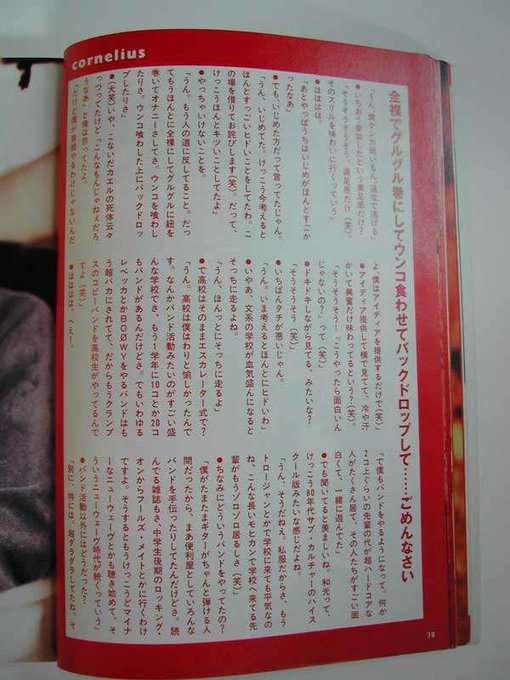 cornelius
全裸でグルグル巻にしてウンコ食わせてバックドロップして……ごめんなさい
「うん。僕ケンカ弱いもん。速攻で逃げる」
●いちおう参加したという満足感だけ？
「そうそうそうそう。満足感だけ（笑）。
そのスリルを味わいに行くっていう」
●ははははは。
「あとやっぱりうちはいじめがほんとすごか
ったなあ」
●でも、いじめた方だって言ってたじゃん。
「うん。いじめてた。けっこう今考えると
ほんとすっごいひどいことをしてたわ。こ
の場を借りてお詫びします（笑）。だって、
けっこうほんとキツいことしてたよ」
●やっちゃいけないことを。
「うん。もう人の道に反してること。だっ
てもうほんとに全裸にしてグルグルに紐を
巻いてオナニーさしてさ。ウンコを喰わし
たりさ。ウンコ喰わした上にバックドロッ
プしたりさ」
●（大笑）いや、こないだカエルの死体云々
っつってたけど「こんなもんじゃねえだろ
うなあ」と俺は思ってたよ。
「だけど僕が直接やるわけじゃないんだ
よ、僕はアイディアを提供するだけで（笑）」
●アイディア提供して横で見てて、冷や汗
かいて興奮だけ味わってるという？（笑）
「そうそうそう！『こうやったら面白いん
じゃないの？』って（笑）」
●ドキドキしながら見てる、みたいな？
「そうそうそう（笑）」
●いちばんタチが悪いじゃん。
「うん。いま考えるとほんとにヒドいわ」
●いやあ、文系の学校が血気盛んになると
そっちに走るよね。
「うん。ほんっとにそっちに走るよ」
●で高校はそのままエスカレーター式で？
「うん。高校は僕はわりと愉しかったんで
す。なんかバンド活動みたいのがすごい盛
んな学校でさ、もう１学年に10コとか20コ
もバンドがあるんだけどさ。でもいわゆる
レベッカとかBOØWYをやるバンドはも
う超バカにされてて、だからもうクランプ
スのコピーバンドを高校生がやってるんで
すよ（笑）」
●はははは、へぇー。
「で僕もバンドをやるようになって、何か
２コ上ぐらいの先輩の代が超ハードコアな
人がたくさん居て、その人たちがすごい面
白くて、一緒に遊んでた」
●でも聞いてると羨ましいね、和光って、
けっこう80年代サブ・カルチャーのハイス
クール版みたいな感じだよね。
「うん。そうだねえ。私服だからさ、もう
トロージャンとかで学校に来ても平気なの
ね、こんな長いモヒカンで学校へ来てる先
輩がもうゾロゾロ居るしさ（笑）」
●ちなみにどういうバンドをやってたの？
「僕がたまたまギターがちゃんと弾ける人
間だったから、まあ便利屋としていろんな
バンドを手伝ったりしてたんだけどさ。読
んでる雑誌もさ、中学生後期のロッキング・
オンからフールズ・メイトとかに行くわけ
ですよ。そうするともうけっこうどマイナ
ーなニューウェーヴとかも聴き始めて、そ
ういうニューウェーヴ時代が熱くっていう」
●バンド活動以外にはどうだった？
「別に、特には。超ダラダラしてたね。そ